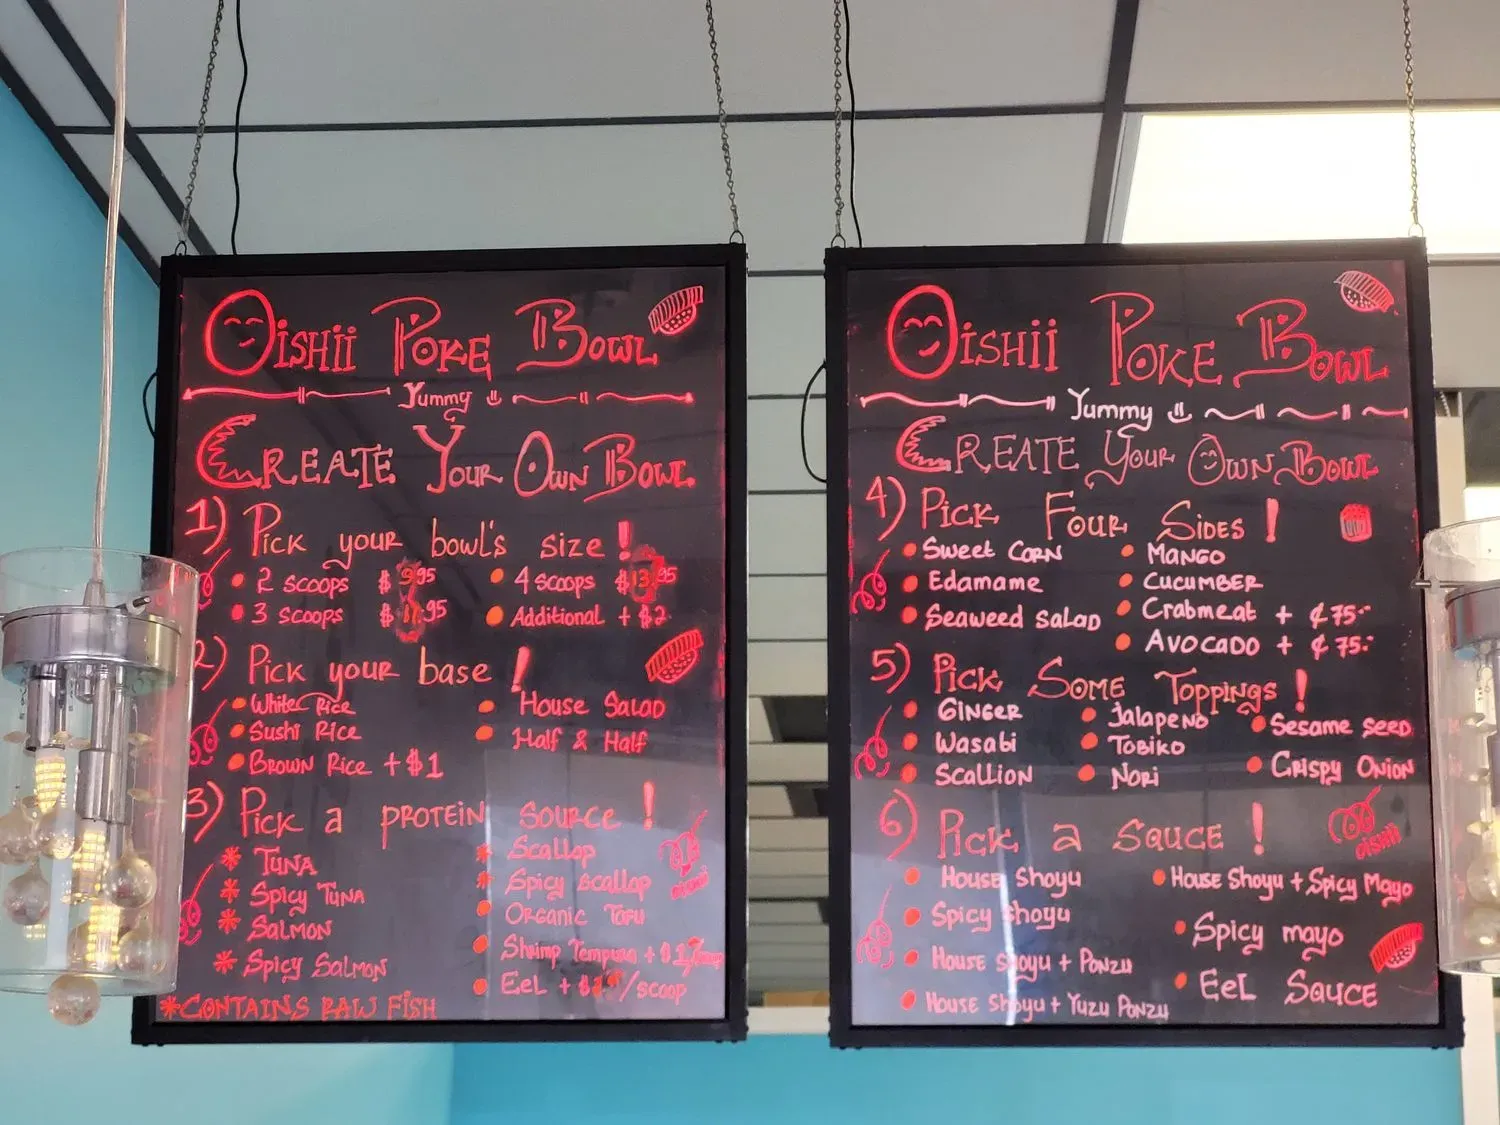 Oishii Poke Bowl
Yummy
Create Your Own Bowl
1) Pick your bowl's size !
2 scoops $ 9.95
3 scoops $ 11.95
4 scoops $ 13.95
Additional + $2
2) Pick your base !
White Rice
Sushi Rice
Brown Rice + $1
House Salad
Half & Half
3) Pick a protein source !
* Tuna
* Spicy Tuna
* Salmon
* Spicy Salmon
* Scallop
* Spicy Scallop
Organic Tofu
Shrimp Tempura + $
Eel + $ /scoop
oishii
*Contains Raw Fish
Oishii Poke Bowl
Yummy
Create Your Own Bowl
4) Pick Four Sides !
Sweet Corn
Edamame
Seaweed Salad
Mango
Cucumber
Crabmeat + ¢75
Avocado + ¢75
5) Pick Some Toppings !
Ginger
Wasabi
Scallion
Jalapeno
Tobiko
Nori
Sesame Seed
Crispy Onion
6) Pick a Sauce !
oishii
House Shoyu
Spicy Shoyu
House Shoyu + Ponzu
House Shoyu + Yuzu Ponzu
House Shoyu + Spicy Mayo
Spicy mayo
Eel Sauce